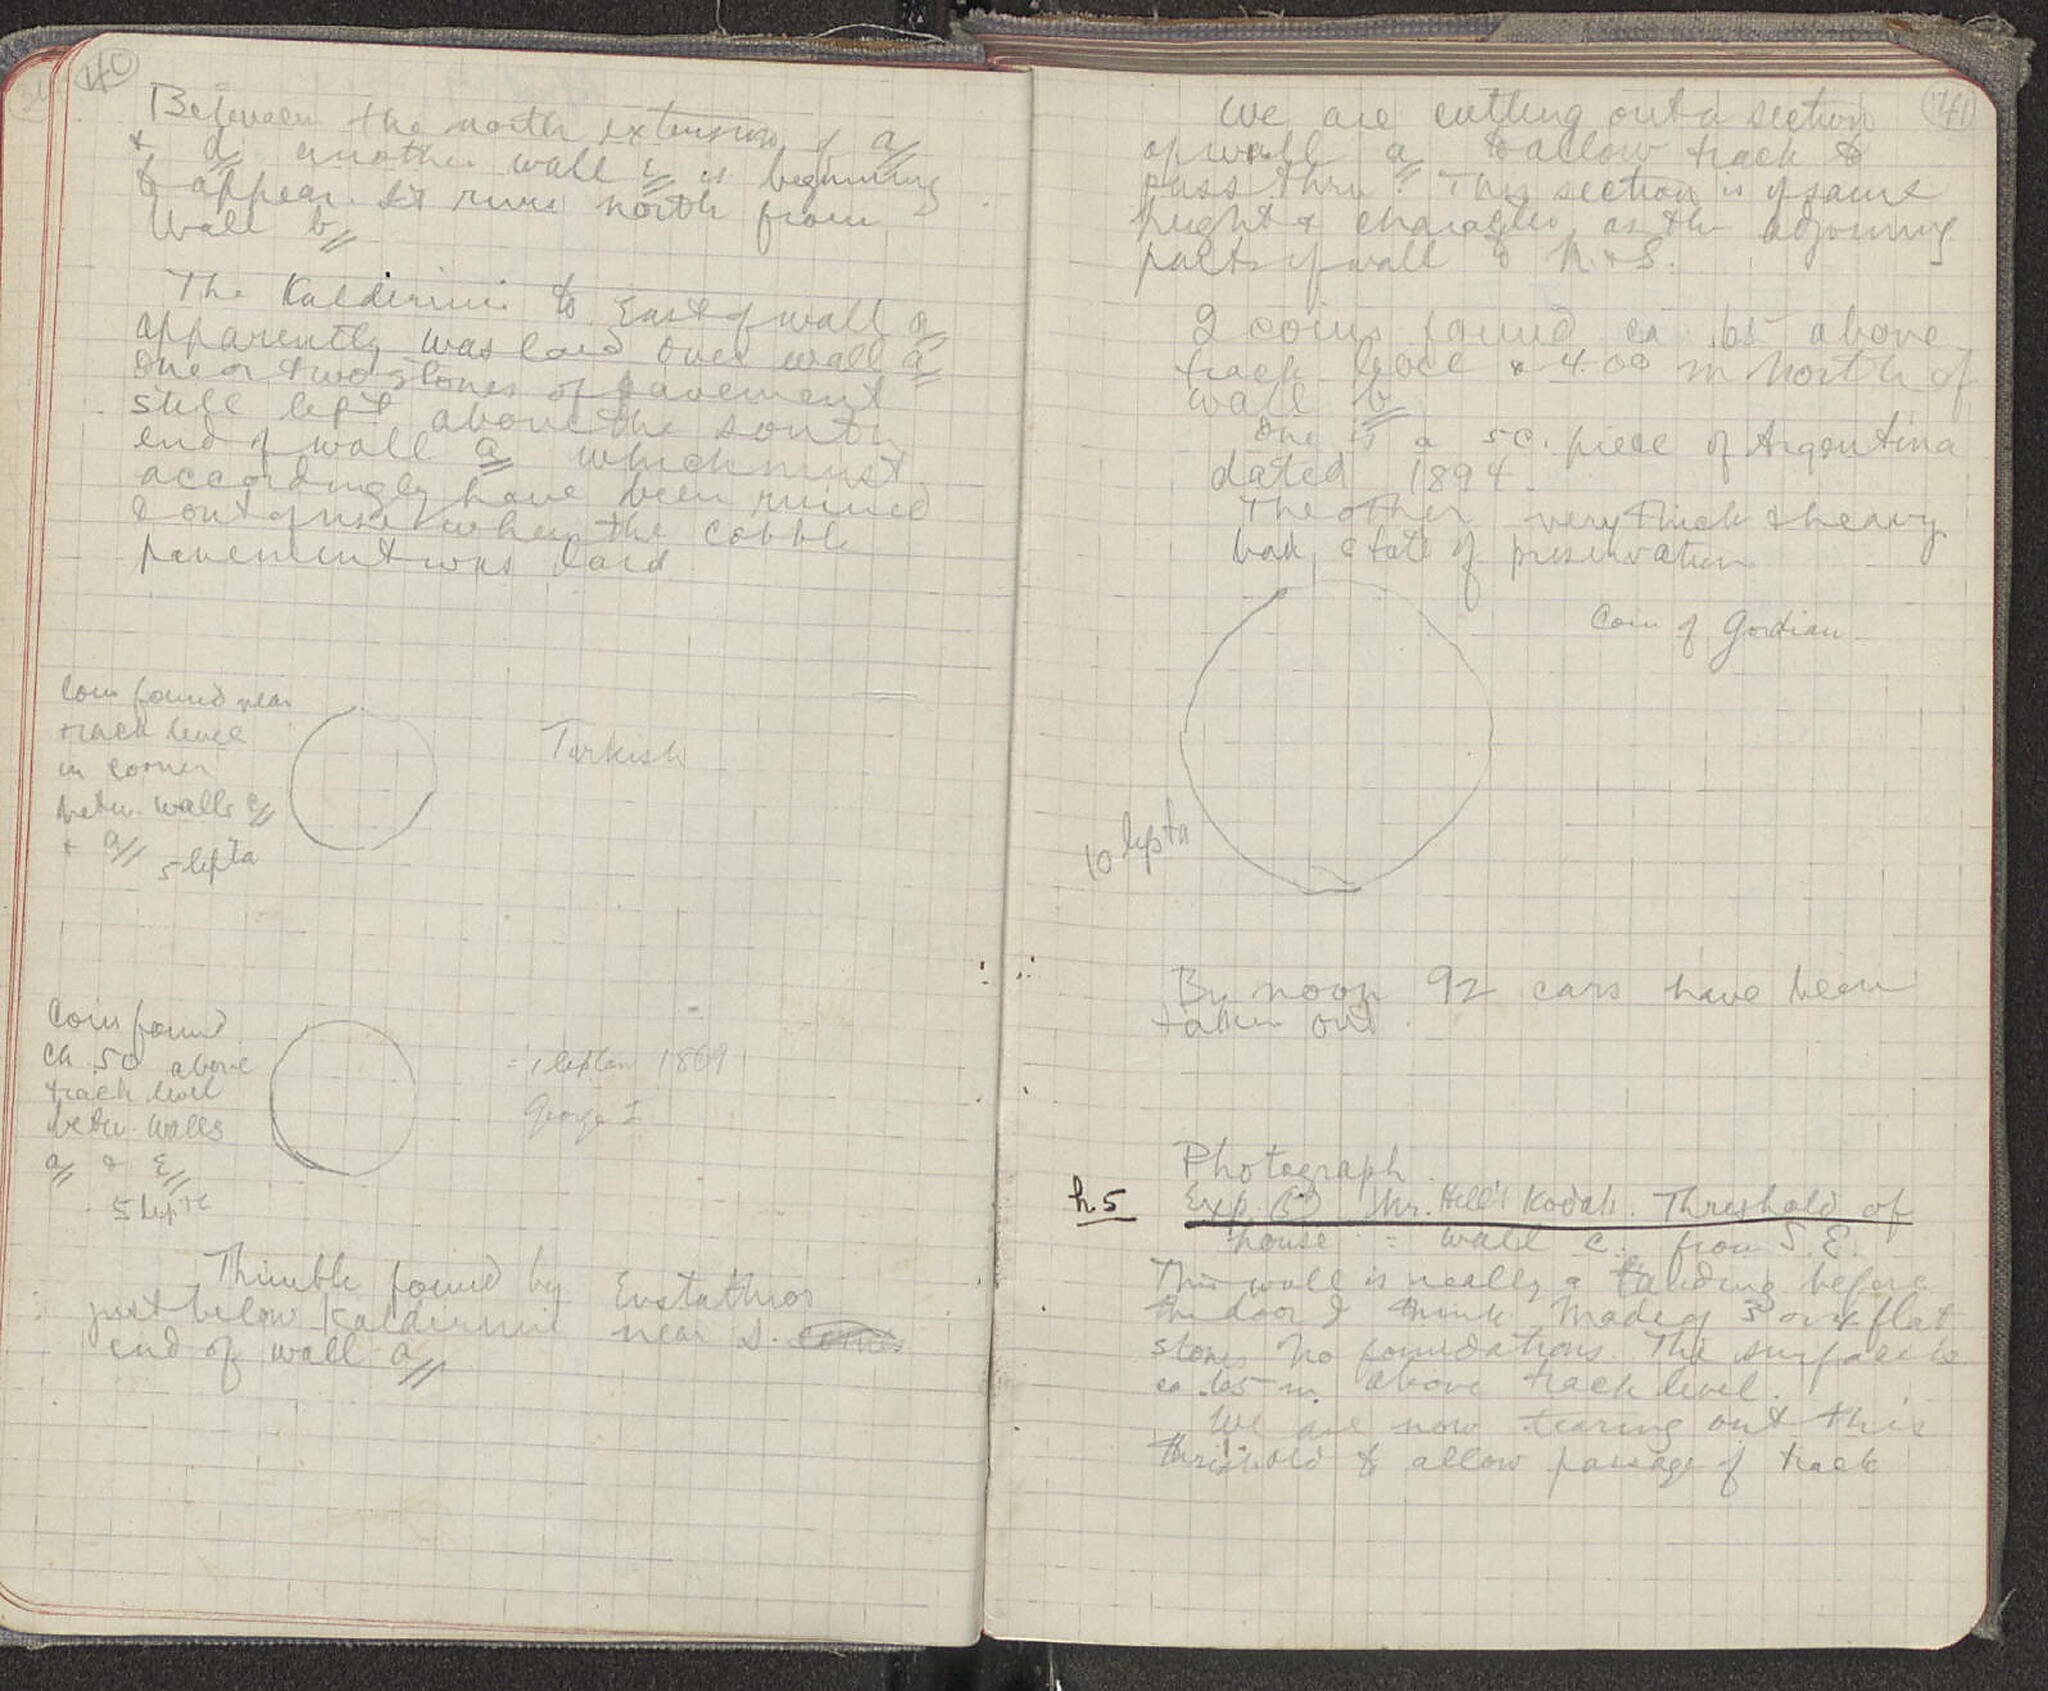 40
Between the north extension of a
& d another wall ε is beginning
to appear. It runs north from
Wall b
The Kalderimi to East of wall a
apparently was laid over wall a
One or two stones of pavement
still left above the south
end of wall a which must
accordingly have been ruined
& out of use when the cobble
pavement was laid
Coin found near
track level
in corner
betw. walls c
& a 5 lepta
Turkish
Coin found
ca .50 above
track level
betw. walls
a & ε
5 lepta
= 1 lepton 1869
George I
Thimble found by Eustathios
just below Kalderimi near S.
end of wall a
41
We are cutting out a section
of wall a to allow track to
pass thru. This section is of same
height & character as the adjoining
parts of wall to N. & S.
2 coins found ca .65 above
track level & 4.00 m North of
wall b
One is a 5c. piece of Argentina
dated 1894.
The other very thick & heavy
bad state of preservation
Coin of Gordian
10 lepta
By noon 92 cars have been
taken out.
Photograph
h.5 Exp. (5) Mr. Hill's Kodak. Threshold of
house = wall c. from S.E.
This wall is really a landing before
the door I think. Made of 3 or 4 flat
stones No foundations. The surface is
ca .65 m. above track level.
We are now tearing out this
threshold to allow passage of track